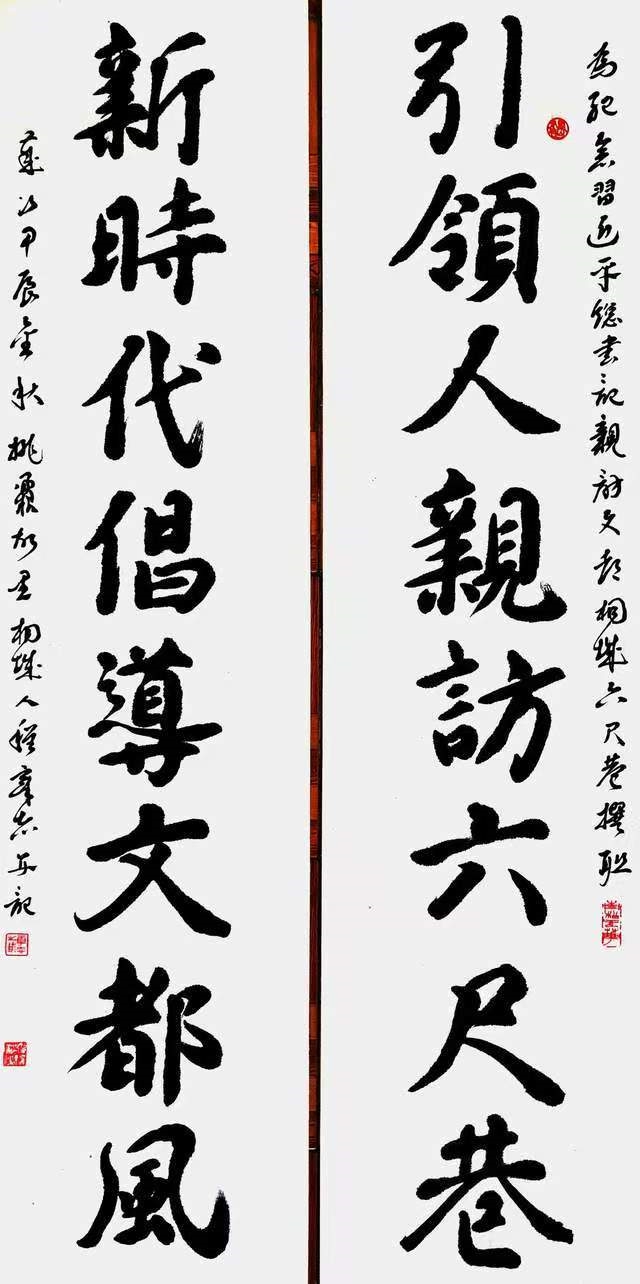 為紀念習近平總書記親訪文都桐城六尺巷撰聯
引領人親訪六尺巷
新時代倡導文都風
甲辰金秋桃李村居桐城人程章志并記